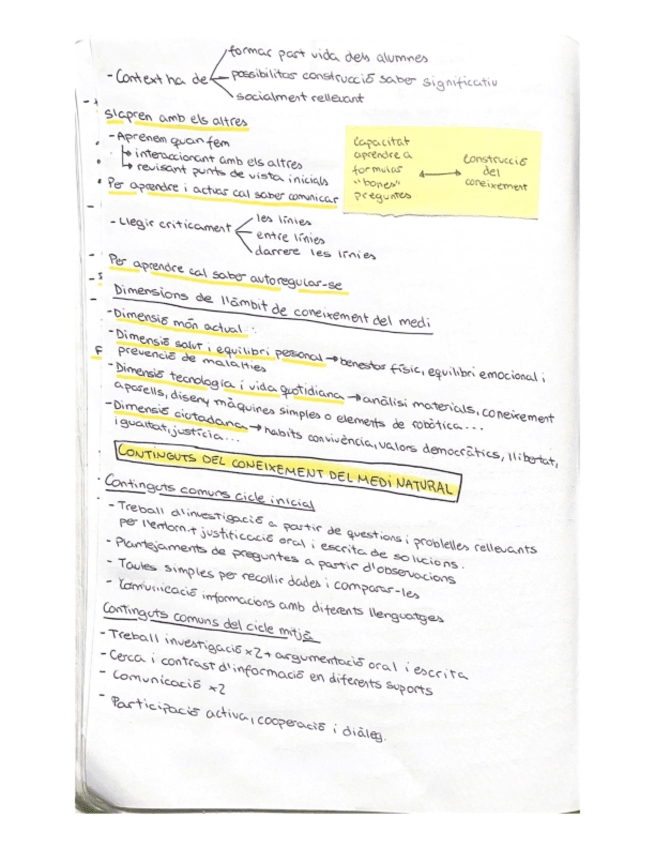 formar part vida dels alumnes
- Context ha de
possibilitar construcció saber significatiu
socialment rellevant
S'apren amb els altres
- Aprenem quan fem
↳ interaccionant amb els altres
↳ revisant punts de vista inicials
Capacitat aprendre a formular "bones" preguntes ↔ Construcció del coneixement
• Per aprendre i actuar cal saber comunicar
- Llegir críticament
les línies
entre línies
darrere les línies
Per aprendre cal saber autoregular-se
Dimensions de l'àmbit de coneixement del medi
- Dimensió món actual :
- Dimensió salut i equilibri personal → benestar físic, equilibri emocional i
prevenció de malalties
- Dimensió tecnologia i vida quotidiana → anàlisi materials, coneixement
aparells, diseny màquines simples o elements de robòtica...
- Dimensió ciutadana → habits convivència, valors democràtics, llibertat,
igualtat, justícia...
CONTINGUTS DEL CONEIXEMENT DEL MEDI NATURAL
· Continguts comuns cicle inicial
- Treball d'investigació a partir de questions i problelles rellevants
per l'entorn + justificació oral i escrita de solucions.
- Plantejaments de preguntes a partir d'observacions
- Taules simples per recollir dades i comparar-les
- Comunicació informacions amb diferents llenguatges
Continguts comuns del cicle mitjà
- Treball investigació x2 + argumentació oral i escrita
- Cerca i contrast d'informació en diferents suports
- Comunicació x2
- Participació activa, cooperació i diàleg.